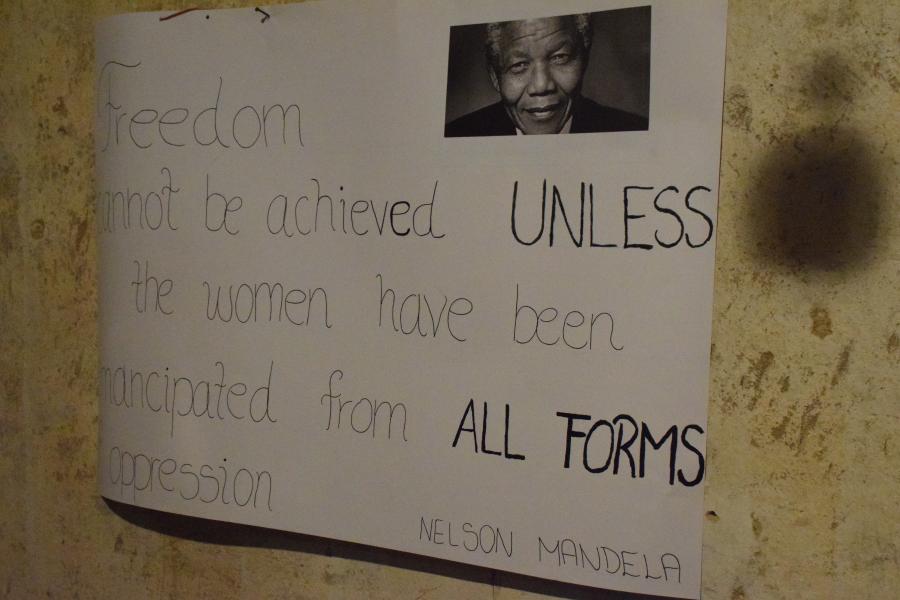 Freedom
annot be achieved UNLESS
the women have been
mancipated from ALL FORMS
oppression
NELSON MANDELA